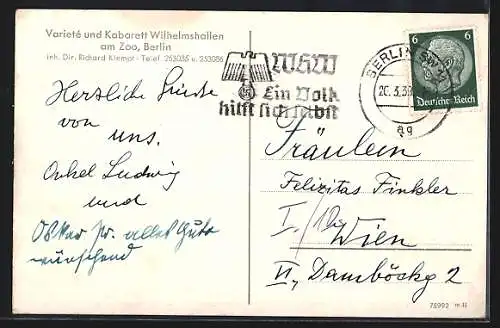 Varieté und Kabarett Wilhelmshallen
am Zoo, Berlin
Inh. Dir. Richard Klempt - Telef. 253035 u. 253036
WHW
Ein Volk
hilft sich selbst
BERLIN SW
20.3.39
ag
6 6
Deutsches Reich
Herzliche Grüsse
von uns.
Onkel Ludwig
und
Oskar alles Gute
wünschend
Fräulein
Felizitas Finkler
I.
Wien
II, Damböckg 2
75992